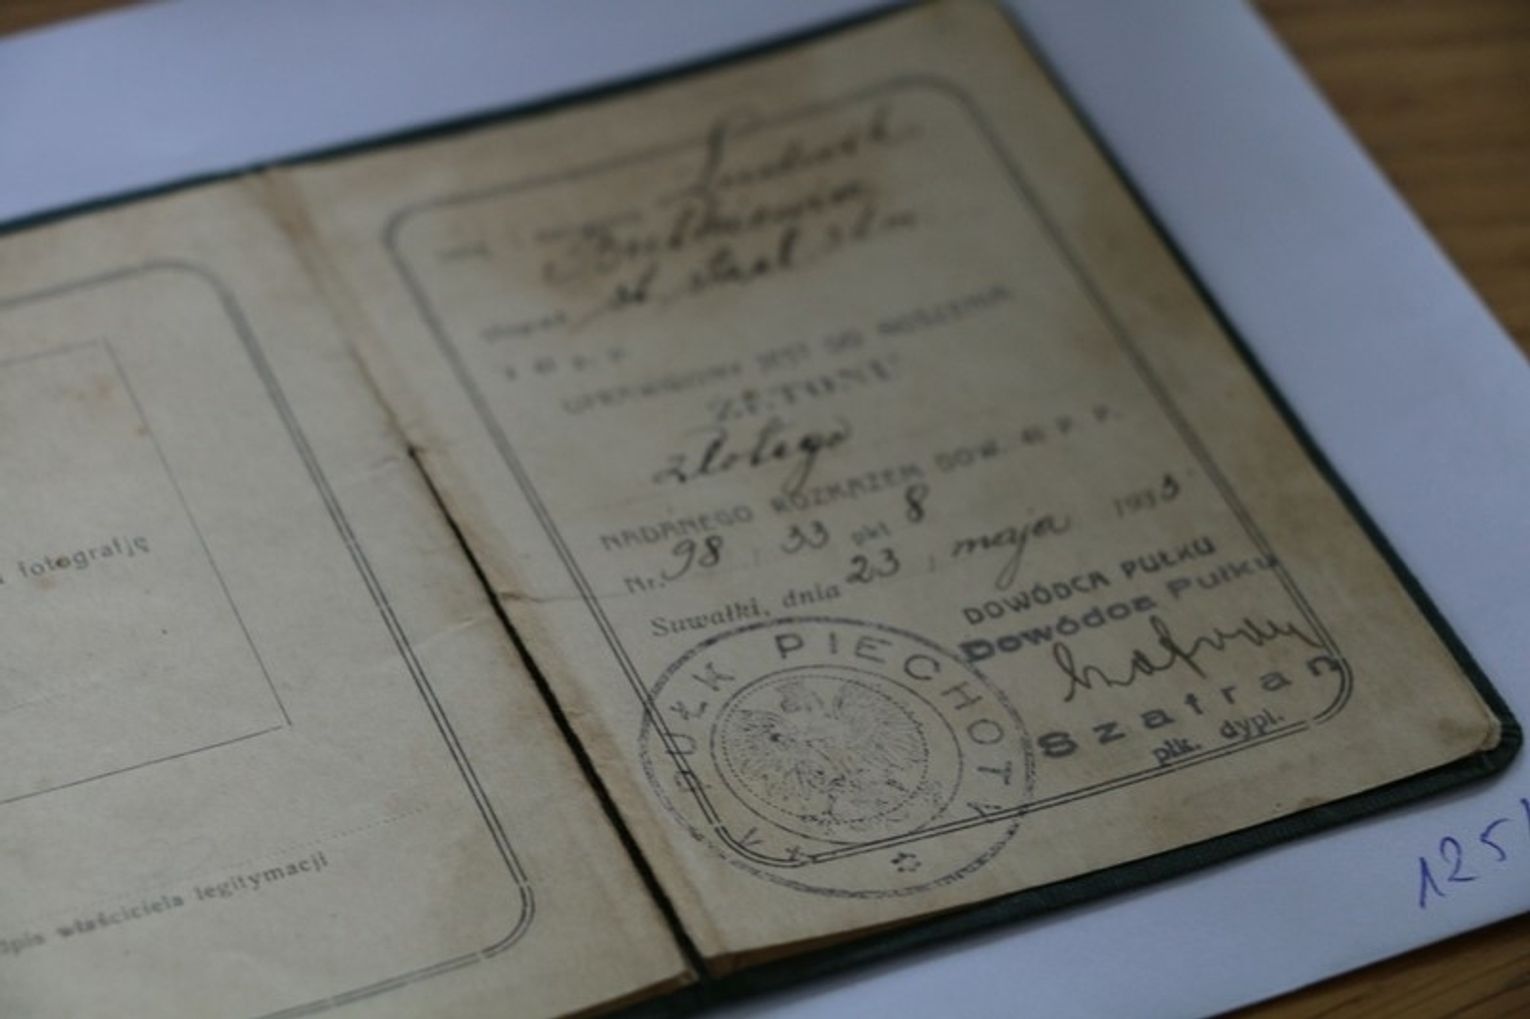 fotografję
podpis właściciela legitymacji
Ludwik
st. strz.
UPRAWNIONY JEST DO NOSZENIA
ŻETONU
złotego
NADANEGO ROZKAZEM DOW. 41 P. P.
Nr. 98, 33 pkt 8
Suwałki, dnia 23, maja 1933
DOWÓDCA PUŁKU
Dowódca Pułku
Szafran
płk. dypl.
PUŁK PIECHOTY
125